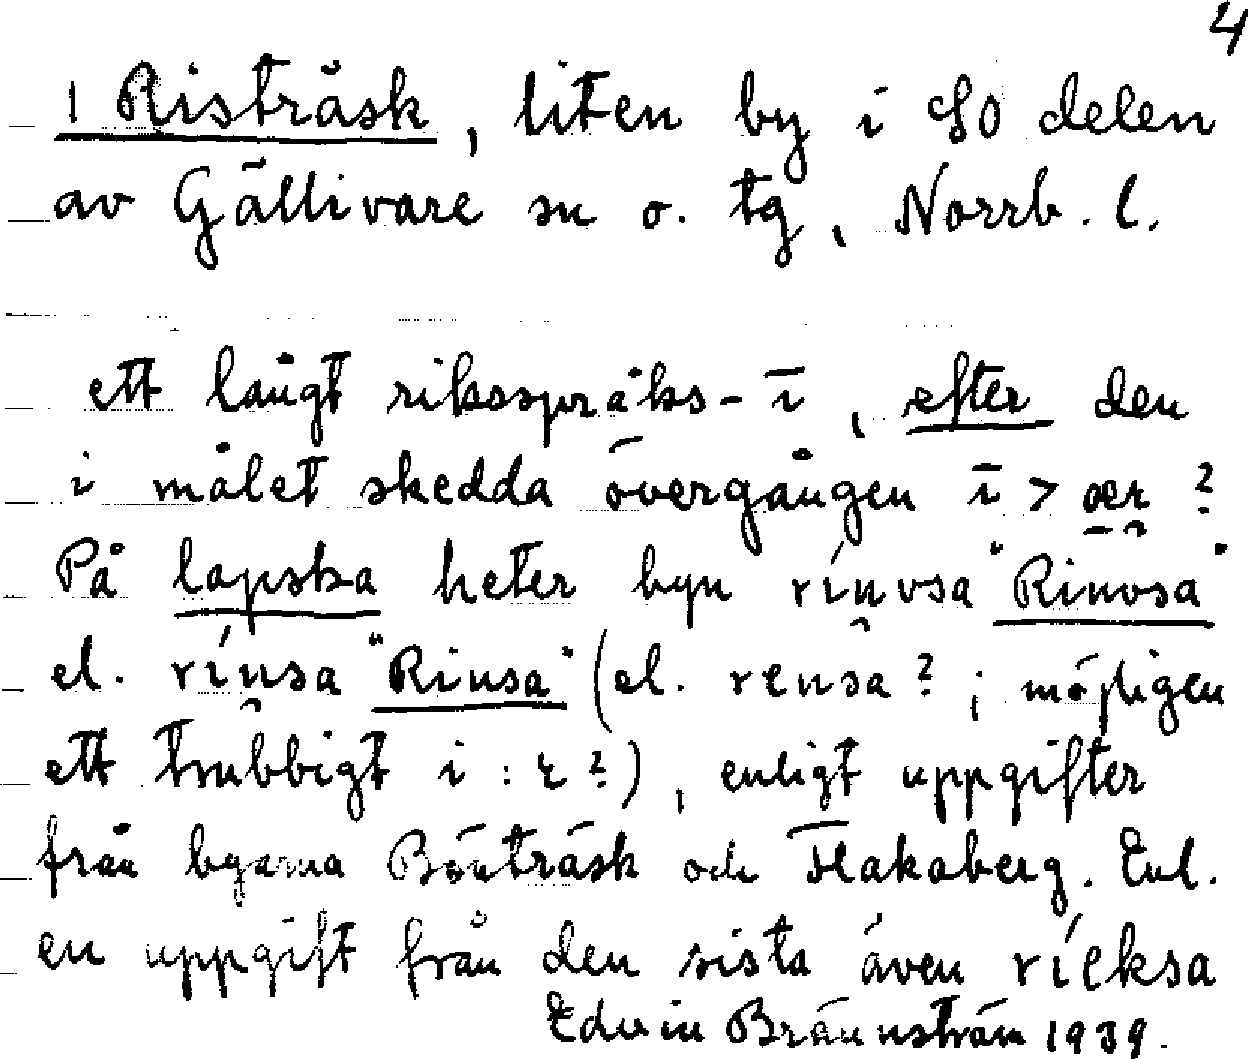 4
1 Risträsk, liten by i SO delen
av Gällivare sn o. tg, Norrb. l.
ett långt riksspråks-ī, efter den
i målet skedda övergången ī > œr ?
På lapska heter byn rínvsa "Rinvsa"
el. rínsa "Rinsa" (el. rensa ? ; möjligen
ett trubbigt i : ɩ ?), enligt uppgifter
från byarna Bönträsk och Flakaberg. Enl.
en uppgift från den sista även ríeksa
Edvin Brännström 1939.